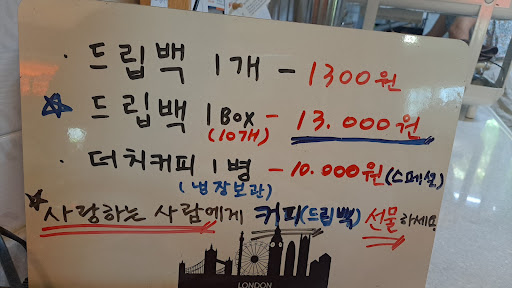 · 드립백 1개 - 1300원
☆ 드립백 1Box - 13.000원
(10개)
· 더치커피 1병 - 10.000원 (스페셜)
(냉장보관)
☆ 사랑하는 사람에게 커피(드립백) 선물하세요
LONDON